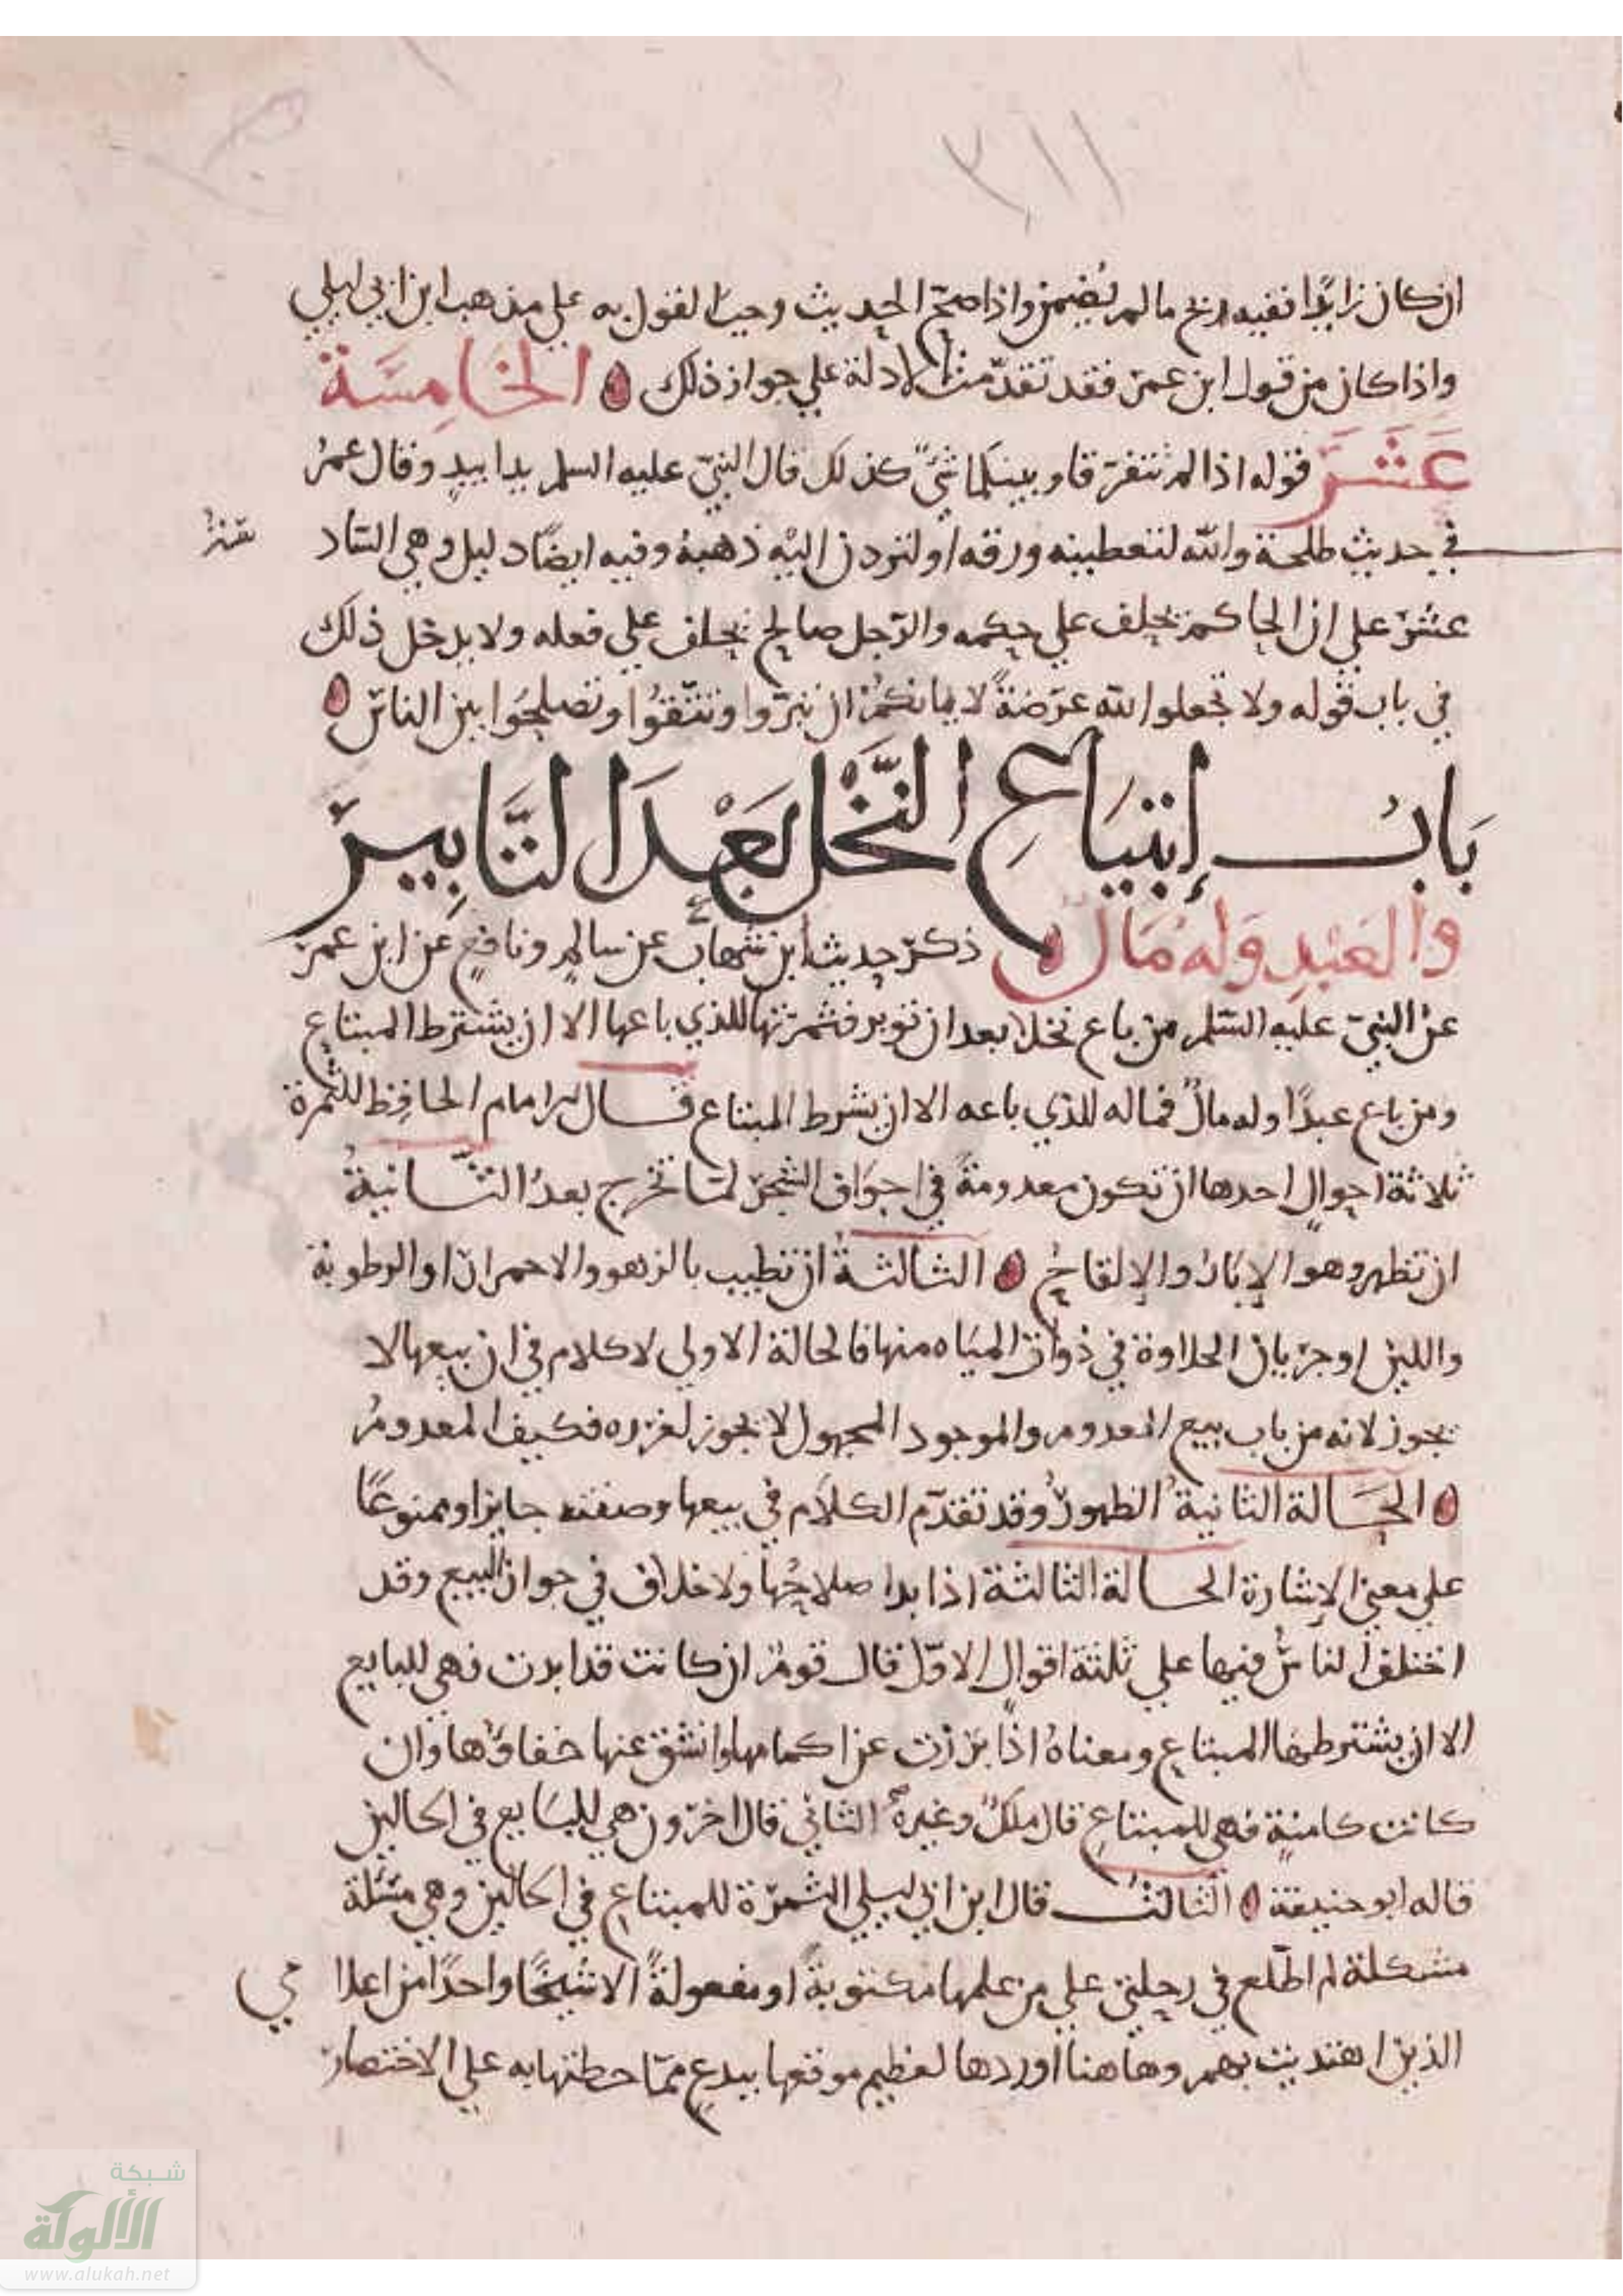 ٣١١
ان كان زايدا ففيه ربح ما لم يُضمن واذا صح الحديث وجب القول به علي مذهب ابن ابي ليلي
واذا كان من قول ابن عمر فقد تقدمت الادلة علي جواز ذلك الخَامِسَة
عَشَرَ قوله اذا لم تتفرقا وبينكما شيٌ كذلك قال النبيّ عليه السلم يدا بيدٍ وقال عمرُ
في حديث طلحة والله لتعطينه ورقه او لتردن اليه ذهبهُ وفيه ايضًا دليل وهي الساد
سَة
عشر علي ان الحاكم يحلف علي حكمه والرجل صالح يحلف علي فعله ولا يدخل ذلك
في باب قوله ولا تجعلوا الله عرضةً لايمانكم ان تبرّوا وتتّقوا وتصلحُوا بين الناس
بَابُ إبتيَاعِ النَّخْلِ بَعْدَ التَّابِيرِ
والعَبْدِ وَلهُ مَال ذكر حديث ابن شهاب عن سالمٍ ونافعٍ عن ابن عمر
عن النبيّ عليه السّلم من باع نخلا بعد ان توبر فثمرتها للذي باعها الا ان يشترط المبتاع
ومن باع عبدًا وله مالٌ فماله للذي باعه الا ان يشرط المبتاع قال الامام الحافِظ للثمرة
ثلاثة احوالٍ احدها ان تكون معدومةً في اجوَاف الشجر لمّا تخرج بعدُ الثَّانيةُ
ان تظهر وهو الإبّارُ والإلقاحُ الثالثةُ ان تطيب بالزهو والاحمرار او الرطوبة
واللين او جريان الحلاوة في ذوات المياه منها فالحالة الاولي لا كلام في ان بيعها لا
يجوز لانه من باب بيع المعدوم والموجود المجهول لا يجوز لغرره فكيف المعدومُ
الحَالة الثانية الظهورُ وقد تقدّم الكلام في بيعها وصفته جايزا وممنوعًا
علي معني الإشارة الحالة الثالثة اذا بدا صلاحُها ولا خلاف في جواز البيع وقد
اختلف الناسُ فيها علي ثلثة اقوال الاوّل قال قومٌ ان كانت قد ابرت فهي للبايع
الا ان يشترطها المبتاع ومعناهُ اذا بَرَزت عن اكمامها وانشق عنها خفاؤها وان
كانت كامنةٍ فهي للمبتاعِ قال ملكٌ وغيرهُ الثاني قال اخرون هي للبَايع في الحالين
قاله ابو حنيفة الثالثُ قال ابن ابي ليلي الثمرة للمبتاع في الحالين وهي مسئلة
مشكلة لم اطّلع في رحلتي علي من علمها مكتوبةً او مفعولةً الا شيخًا واحدًا من اعلا
مي
الذين اهتديت بهم وهاهنا اوردها لعظيم موقعها ببدعٍ ممّا حطتها به علي الاختصار
شبكة
الألوكة
www.alukah.net